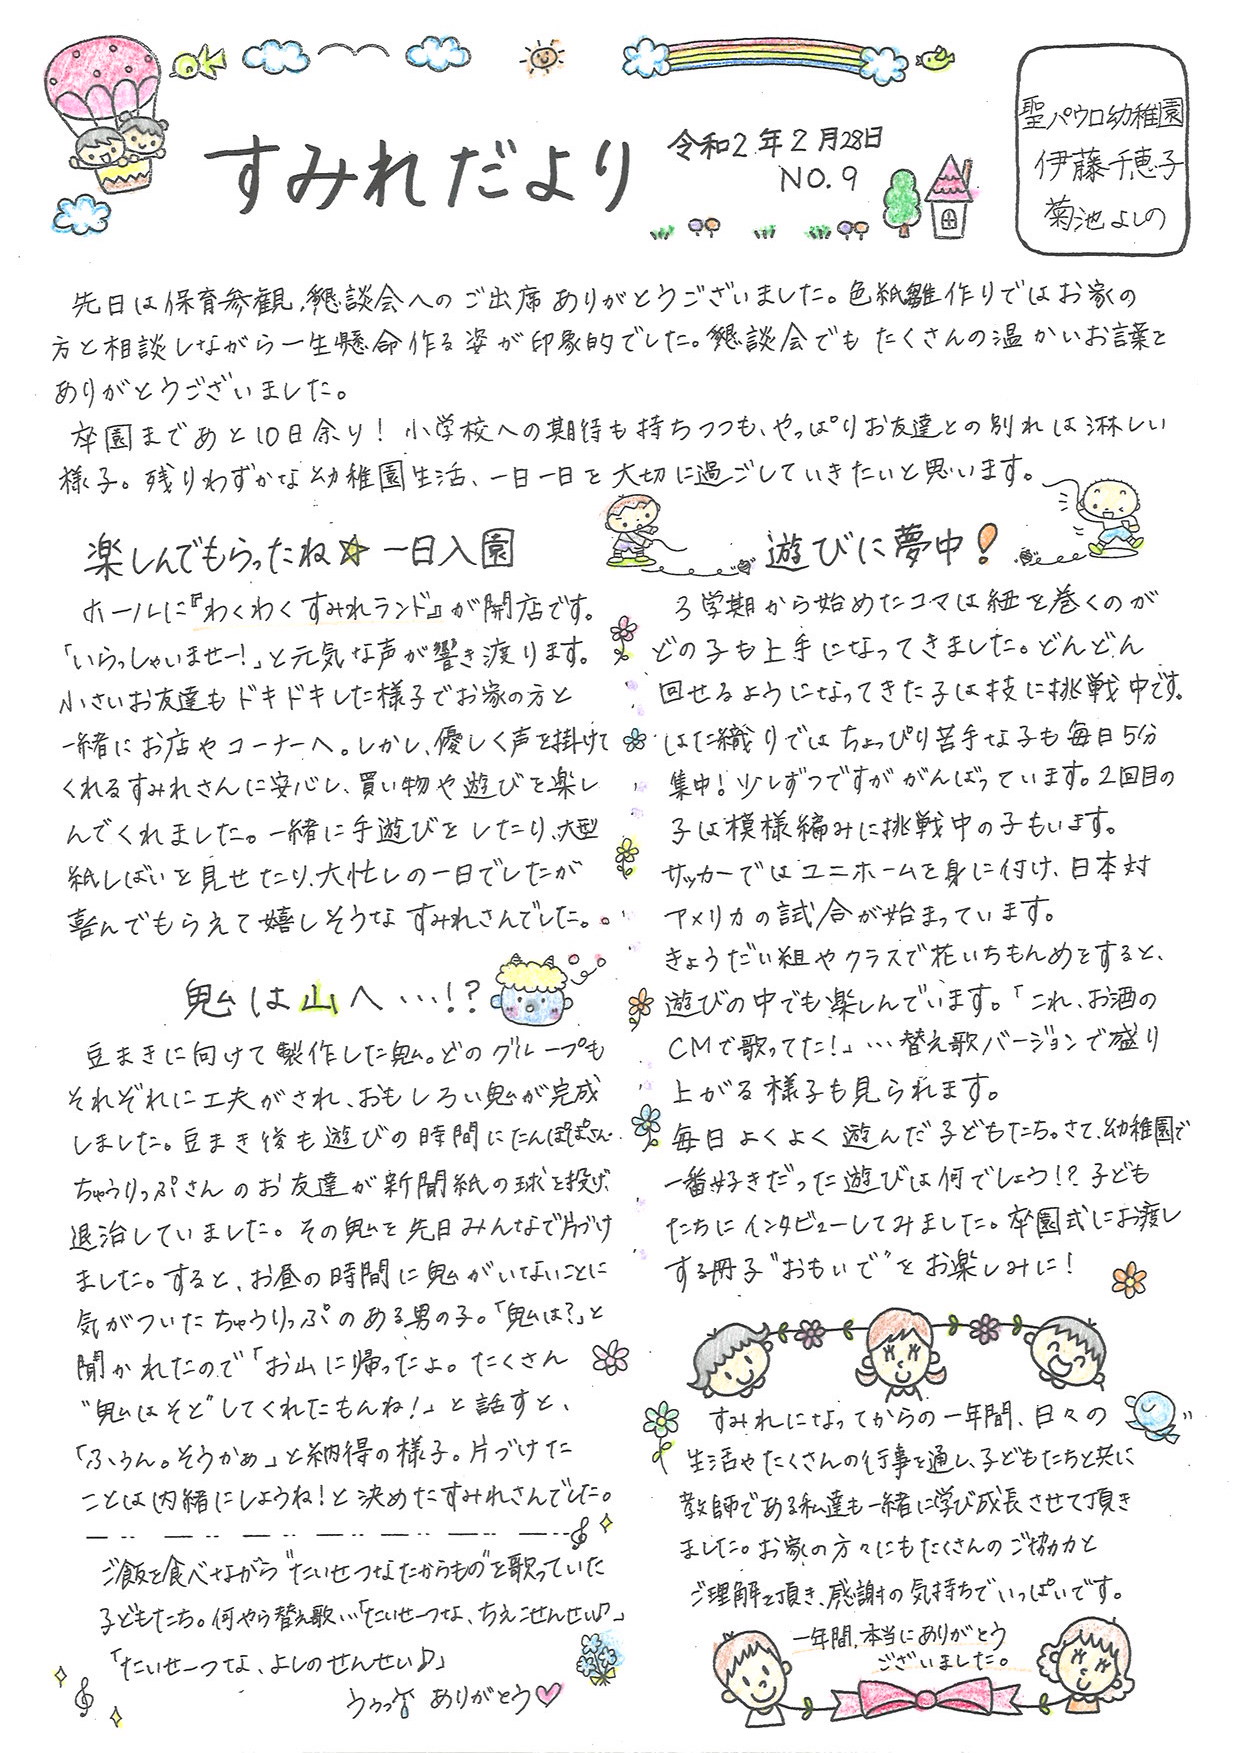 すみれだより
令和2年2月28日
NO.9
聖パウロ幼稚園
伊藤千恵子
菊池よしの
先日は保育参観、懇談会へのご出席ありがとうございました。色紙雛作りではお家の
方と相談しながら一生懸命作る姿が印象的でした。懇談会でもたくさんの温かいお言葉を
ありがとうございました。
卒園まであと10日余り!小学校への期待も持ちつつも、やっぱりお友達との別れは淋しい
様子。残りわずかな幼稚園生活、一日一日を大切に過ごしていきたいと思います。
楽しんでもらったね☆一日入園
ホールに『わくわくすみれランド』が開店です。
「いらっしゃいませー!」と元気な声が響き渡ります。
小さいお友達もドキドキした様子でお家の方と
一緒にお店やコーナーへ。しかし、優しく声を掛けて
くれるすみれさんに安心し、買い物や遊びを楽し
んでくれました。一緒に手遊びをしたり、大型
紙しばいを見せたり、大忙しの一日でしたが
喜んでもらえて嬉しそうなすみれさんでした。
鬼は山へ…!?
豆まきに向けて製作した鬼。どのグループも
それぞれに工夫がされ、おもしろい鬼が完成
しました。豆まき後も遊びの時間にたんぽぽさん、
ちゅうりっぷさんのお友達が新聞紙の球を投げ、
退治していました。その鬼を先日みんなで片づけ
ました。すると、お昼の時間に鬼がいないことに
気がついたちゅうりっぷのある男の子。「鬼は?」と
聞かれたので「お山に帰ったよ。たくさん
“鬼はそと”してくれたもんね!」と話すと、
「ふぅん。そうかぁ」と納得の様子。片づけた
ことは内緒にしようね!と決めたすみれさんでした。
ご飯を食べながら“たいせつなたからもの”を歌っていた
子どもたち。何やら替え歌…「たいせーつな、ちえこせんせい♪」
「たいせーつな、よしのせんせい♪」
うぅっ ありがとう♡
遊びに夢中!
3学期から始めたコマは紐を巻くのが
どの子も上手になってきました。どんどん
回せるようになってきた子は技に挑戦中です。
はた織りではちょっぴり苦手な子も毎日5分
集中!少しずつですががんばっています。2回目の
子は模様編みに挑戦中の子もいます。
サッカーではユニホームを身に付け、日本対
アメリカの試合が始まっています。
きょうだい組やクラスで花いちもんめをすると、
遊びの中でも楽しんでいます。「これ、お酒の
CMで歌ってた!」…替え歌バージョンで盛り
上がる様子も見られます。
毎日よくよく遊んだ子どもたち。さて、幼稚園で
一番好きだった遊びは何でしょう!?子ども
たちにインタビューしてみました。卒園式にお渡し
する冊子“おもいで”をお楽しみに!
すみれになってからの一年間、日々の
生活やたくさんの行事を通し、子どもたちと共に
教師である私達も一緒に学び成長させて頂き
ました。お家の方々にもたくさんのご協力と
ご理解を頂き、感謝の気持ちでいっぱいです。
一年間、本当にありがとう
ございました。